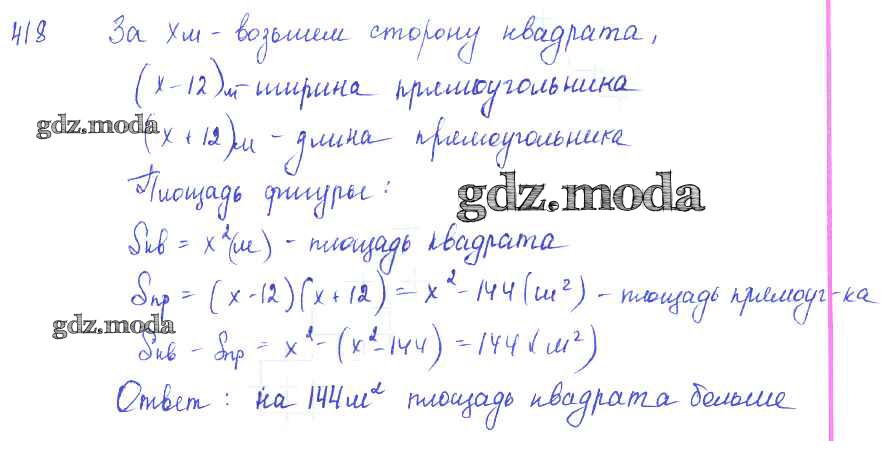 418 За x м - возьмем сторону квадрата,
(x-12) м - ширина прямоугольника
gdz.moda
(x+12) м - длина прямоугольника
Площадь фигуры:
gdz.moda
Sкв = x²(м) - площадь квадрата
Sпр = (x-12)(x+12) = x²-144 (м²) - площадь прямоуг-ка
gdz.moda
Sкв - Sпр = x²-(x²-144) = 144 (м²)
Ответ: на 144 м² площадь квадрата больше